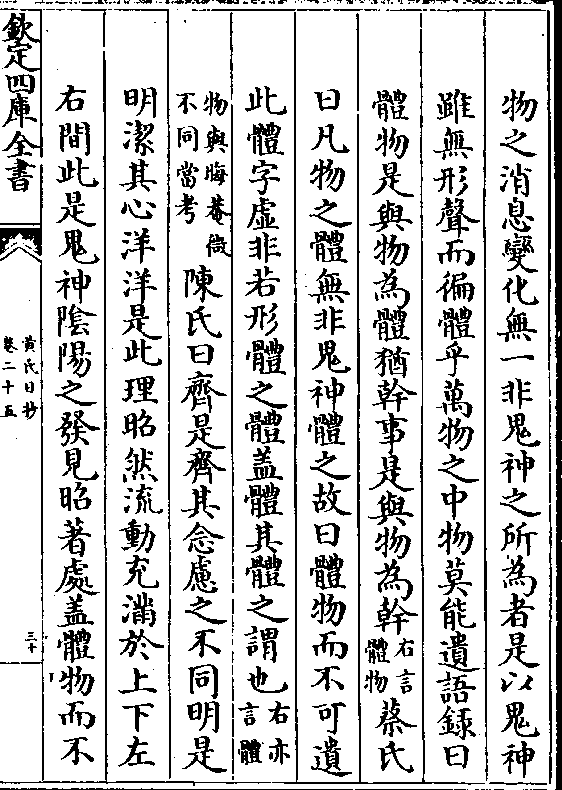 物之消息變化無一非鬼神之所為者是以鬼神
雖無形聲而徧體乎萬物之中物莫能遺語錄曰
體物是與物為體猶幹事是與物為幹右言體物蔡氏
曰凡物之體無非鬼神體之故曰體物而不可遺
此體字虛非若形體之體盖體其體之謂也右亦言體
物與晦菴微不同當考陳氏曰齊是齊其念慮之不同明是
明潔其心洋洋是此理昭然流動充滿於上下左
右間此是鬼神陰陽之發見昭著處盖體物而不
欽定四庫全書
黄氏日抄
卷二十五
三十